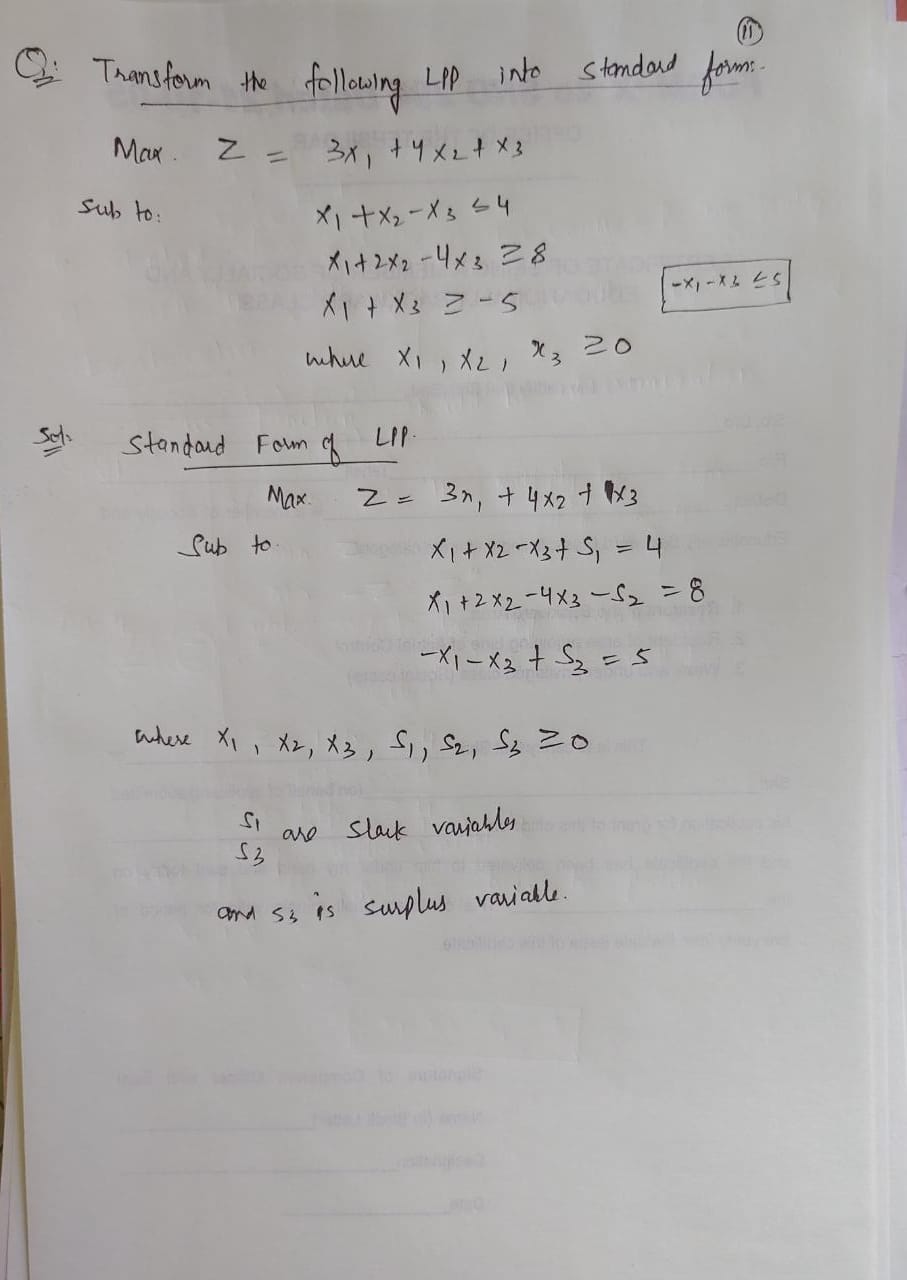 11
Q: Transform the following LPP into standard form:-
Max. Z = 3x₁ + 4x₂ + x₃
Sub to: x₁ + x₂ - x₃ ≤ 4
x₁ + 2x₂ - 4x₃ ≥ 8
x₁ + x₃ ≥ -5
-x₁ - x₃ ≤ 5
where x₁, x₂, x₃ ≥ 0
Sol: Standard Form of LPP.
Max. Z = 3x₁ + 4x₂ + 1x₃
Sub to. x₁ + x₂ - x₃ + S₁ = 4
x₁ + 2x₂ - 4x₃ - S₂ = 8
-x₁ - x₃ + S₃ = 5
where x₁, x₂, x₃, S₁, S₂, S₃ ≥ 0
S₁
S₃ are slack variables
and s₃ is surplus variable.